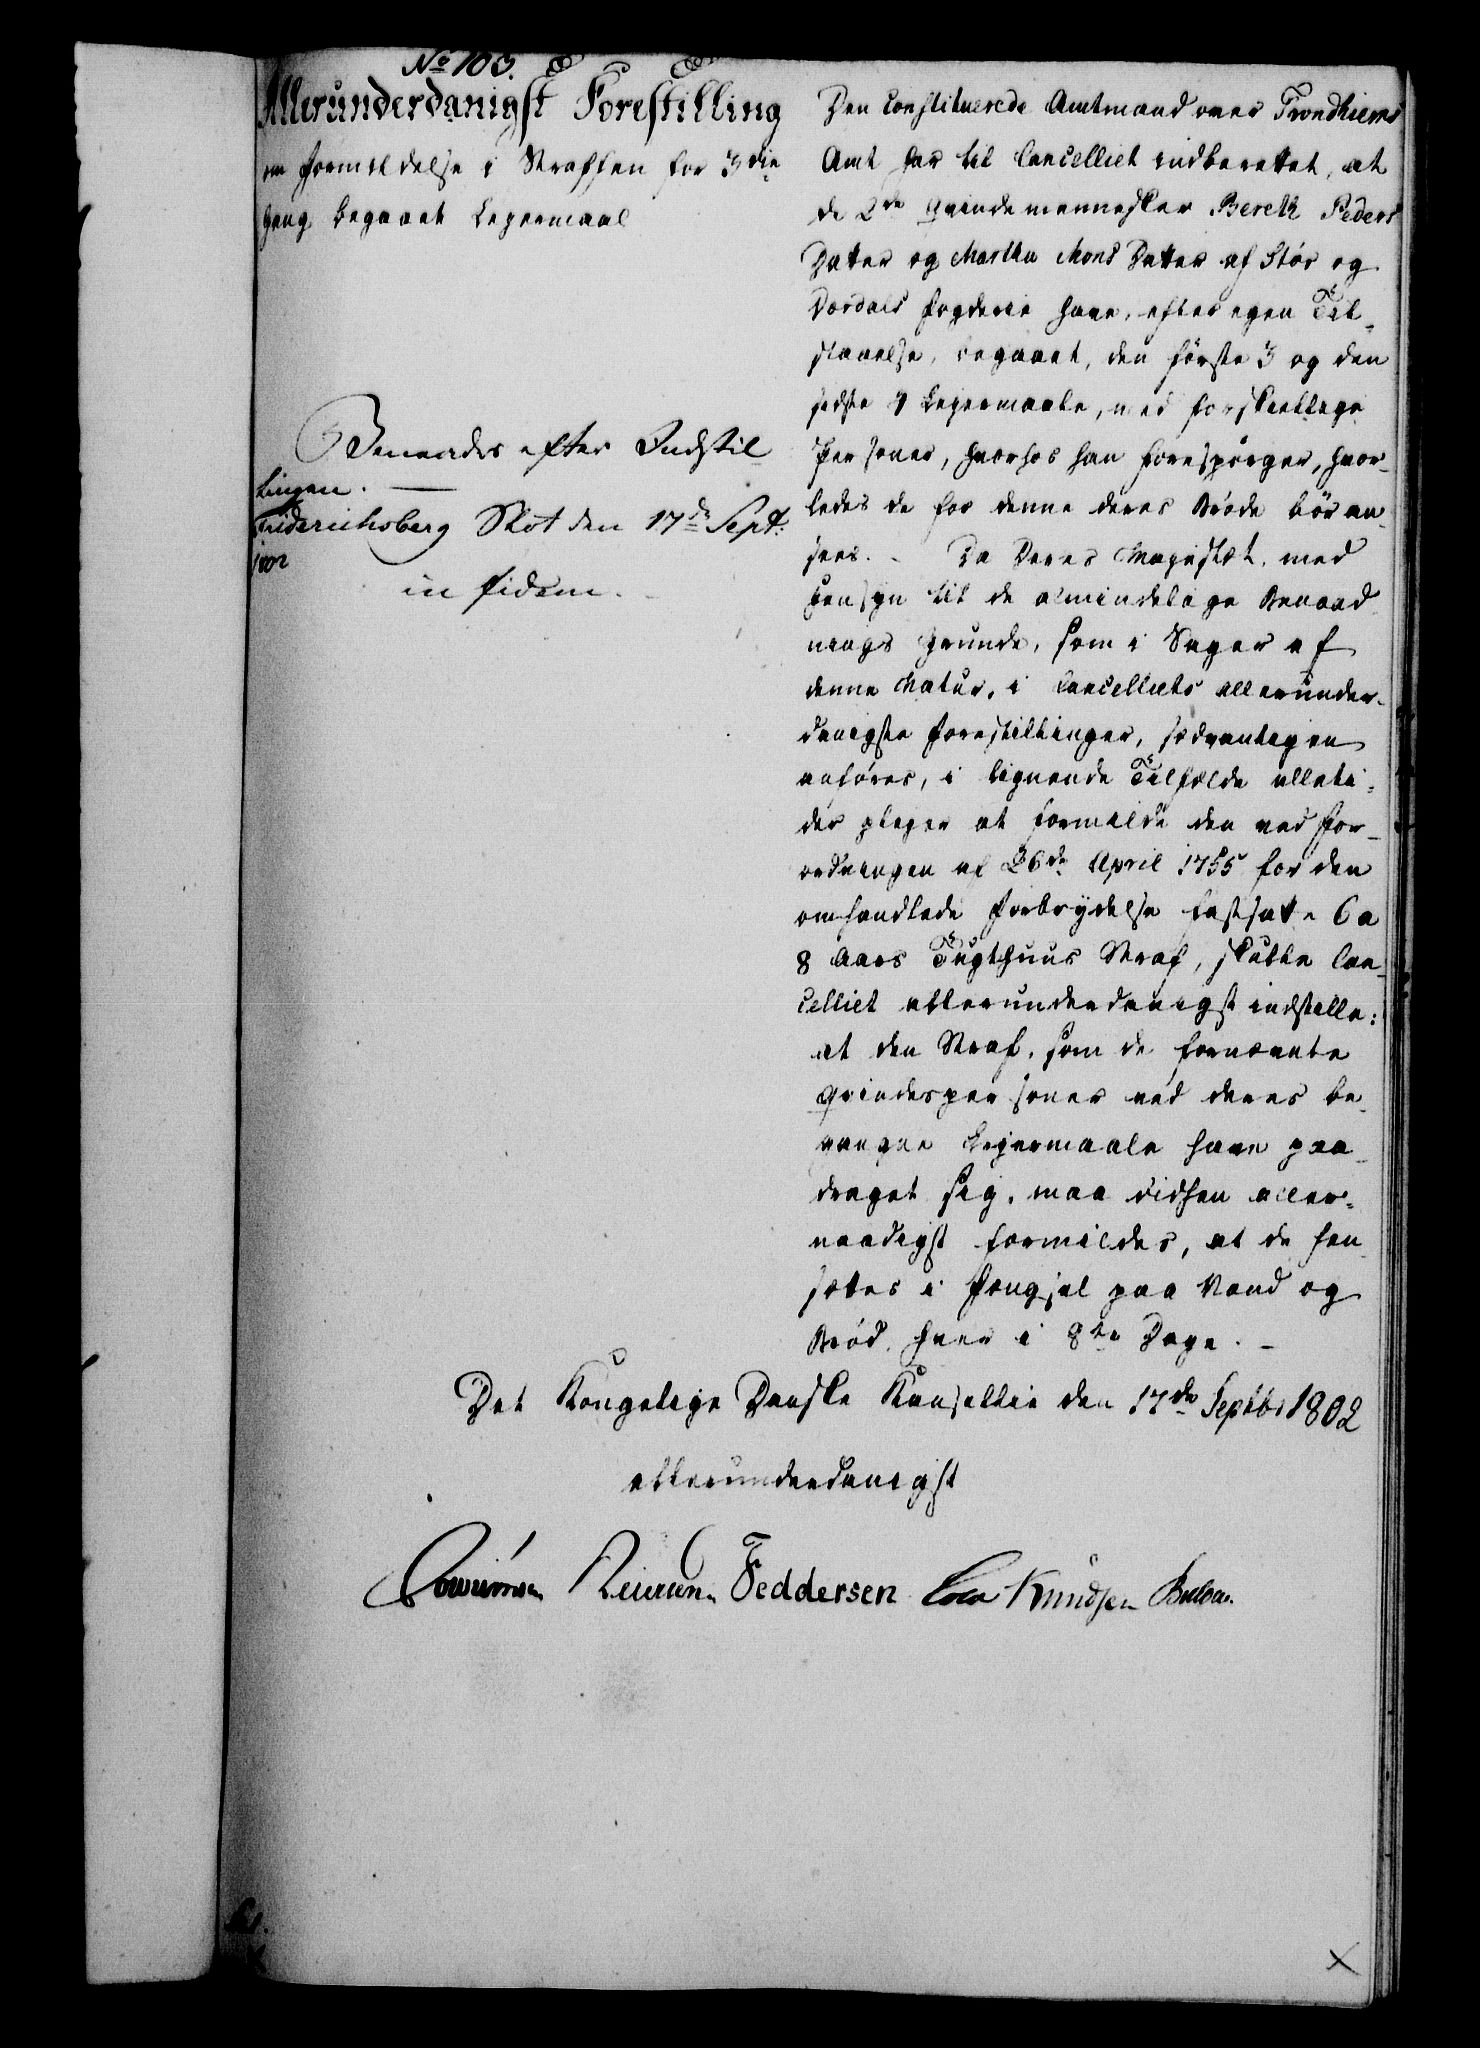 No 103.
Allerunderdanigst Forestilling
om Formildelse i Straffen for 3die
Gang begaaet Leiermaal
Benaades efter Indstil
lingen. —
Friderichsberg Slot den 17de Sept:
1802
in fidem.
Den Constituerede Amtmand over Trondhiems
Amt har til Cancelliet indberettet, at
de 2de Qvindemennesker Bereth Peders
Datter og Martha Mons Datter af Stör og
Dordals Fogderie have, efter egen Til-
staaelse, begaaet, den förste 3 og den
sidste 4 Leyermaale, med forskiellige
Personer, hvorhos han forespörger, hvor-
ledes de for denne deres Bröde bör an-
sees. - Da Deres Majestæt, med
Hensyn til de almindelige Benaad
nings Grunde, som i Sager af
denne Natur, i Cancelliets allerunder-
danigste Forestillinger, sædvanligen
anföres, i lignende Tilfælde alleti-
der pleier at formilde den ved For-
ordningen af 26de April 1755 for den
omhandlede Forbrydelse fastsatte 6 a
8 Aars Tugthuus Straf, skulle Can-
celliet allerunderdanigst indstille:
at den Straf, som de fornævnte
Qvindespersoner ved deres be-
gangne Leyermaale have paa-
draget sig, maa vidsen aller-
naadigst formildes, at de hen
sættes i Fængsel paa Vand og
Bröd, hver i 8te Dage. -
Det Kongelige Danske Kanscellie den 17de Septbr 1802
allerunderdanigst
Feddersen Knudsen